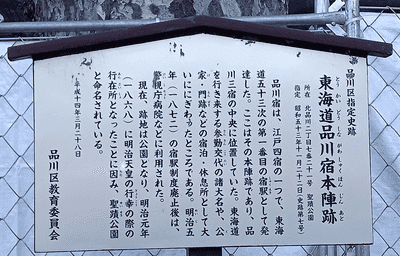 品川区指定史跡
とうかいどうしながわしゅくほんじんあと
東海道品川宿本陣跡
所在　北品川二丁目七番二十一号　聖蹟公園
指定　昭和五十三年十一月二十二日(史跡第七号)
品川宿は、江戸四宿の一つで、東海
道五十三次の第一番目の宿駅として発
達した。ここはその本陣跡であり、品
川三宿の中央に位置していた。東海道
を行き来する参勤交代の諸大名や、公
家・門跡などの宿泊・休息所として大
いににぎわったところである。明治五
年(一八七二)の宿駅制度廃止後は、
警視庁病院などに利用された。
現在、跡地は公園となり、明治元年
(一八六八)に明治天皇の行幸の際の
行在所となったことに因み、聖蹟公園
と命名されている。
平成十四年三月二十八日
品川区教育委員会